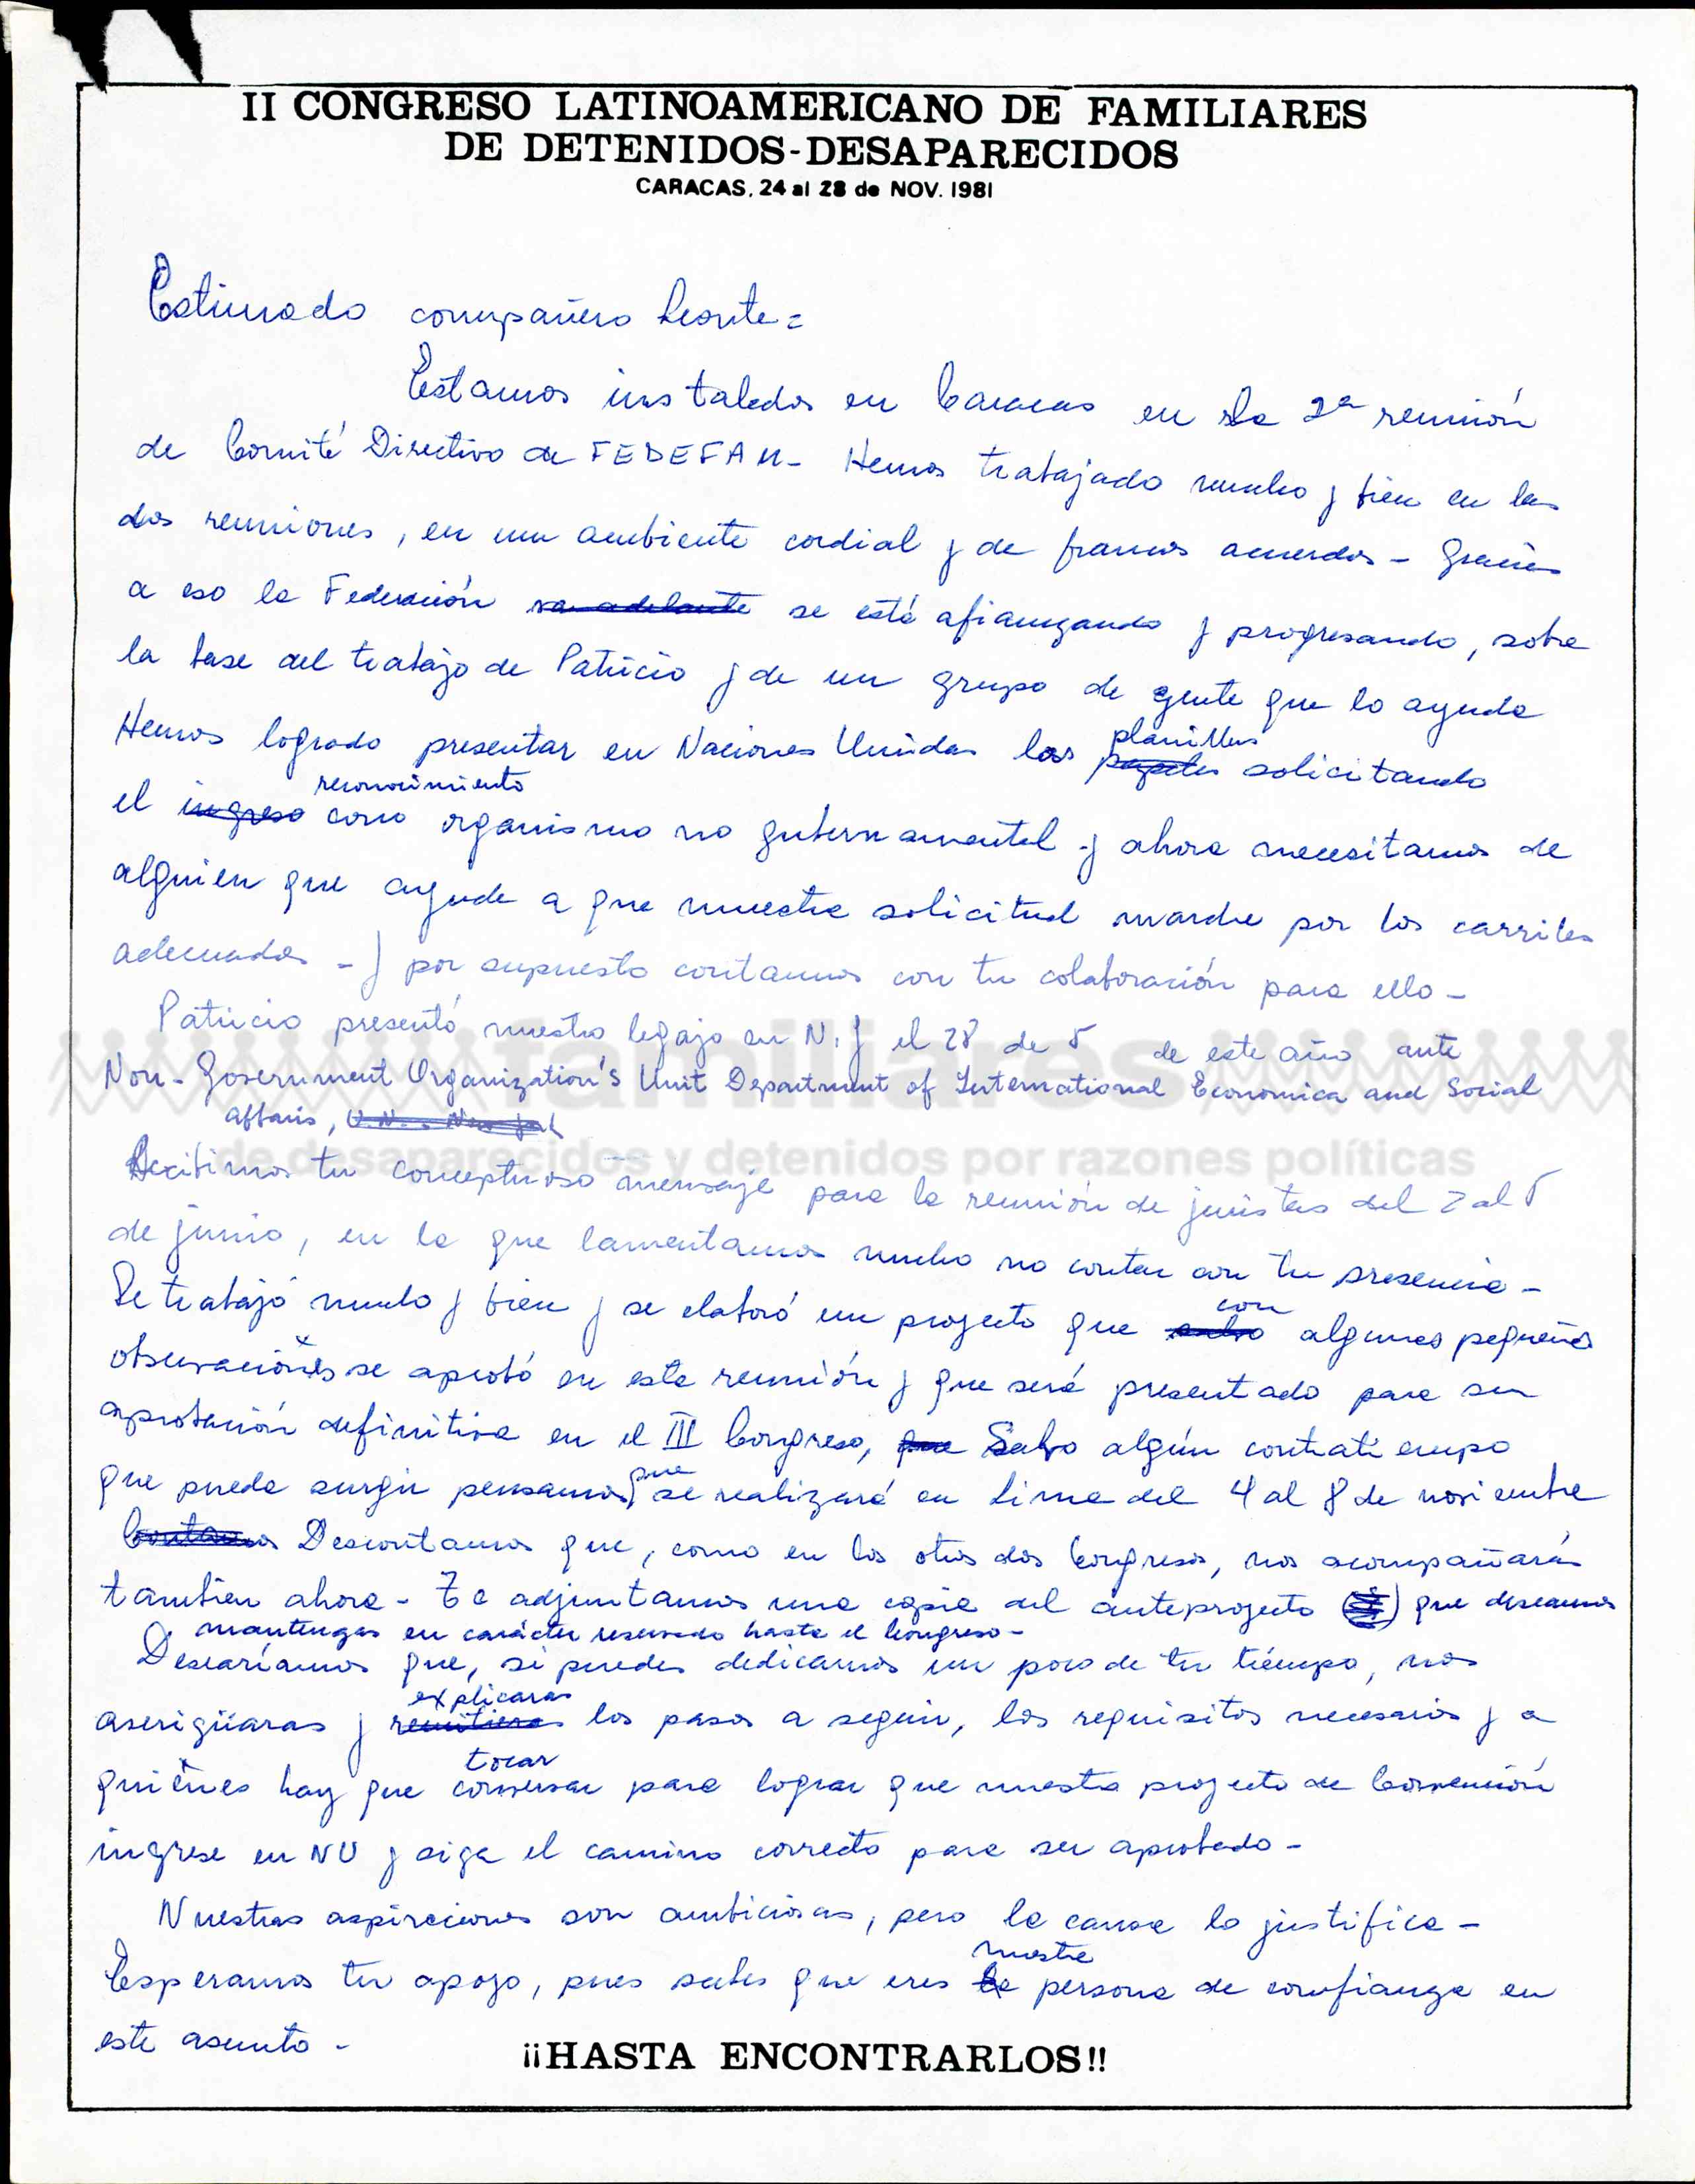 II CONGRESO LATINOAMERICANO DE FAMILIARES
DE DETENIDOS-DESAPARECIDOS
CARACAS, 24 al 28 de NOV. 1981
Estimado compañero Leonte=
Estamos instalados en Caracas en la 2ª reunión
de Comité Directivo de FEDEFAM- Hemos trabajado mucho y bien en las
dos reuniones, en un ambiente cordial y de francos acuerdos - Gracias
a eso la Federación va adelante se está afianzando y progresando, sobre
la base del trabajo de Patricio y de un grupo de gente que lo ayuda
Hemos logrado presentar en Naciones Unidas las papeles planillas solicitando
el ingreso reconocimiento como organismo no gubernamental y ahora necesitamos de
alguien que ayude a que nuestra solicitud marche por los carriles
adecuados - y por supuesto contamos con tu colaboración para ello -
Patricio presentó nuestro legajo en N.Y el 28 de 5 de este año ante
Non-Government Organization's Unit Department of International Economica and Social
affairs, U.N. - New York
Recibimos tu conceptuoso mensaje para la reunión de juristas del 2 al 5
de junio, en la que lamentamos mucho no contar con tu presencia -
Se trabajó mucho y bien y se elaboró un proyecto que salvo con algunas pequeñas
observaciones se aprobó en esta reunión y que será presentado para su
aprobación definitiva en el III Congreso, que Salvo algún contratiempo
que pueda surgir pensamos que se realizará en Lima del 4 al 8 de noviembre
Contamos Descontamos que, como en los otros dos Congresos, nos acompañarás
tambien ahora - Te adjuntamos una copia del anteproyecto que deseamos
mantengas en carácter reservado hasta el Congreso -
Desearíamos que, si puedes dedicarnos un poco de tu tiempo, nos
averigüaras y remitieras explicaras los pasos a seguir, los requisitos necesarios y a
quiénes hay que conversar tocar para lograr que nuestro proyecto de Convención
ingrese en NU y siga el camino correcto para ser aprobado -
Nuestras aspiraciones son ambiciosas, pero la causa lo justifica -
Esperamos tu apoyo, pues sabes que eres la nuestra persona de confianza en
este asunto -
¡¡HASTA ENCONTRARLOS!!
familiares
de desaparecidos y detenidos por razones políticas